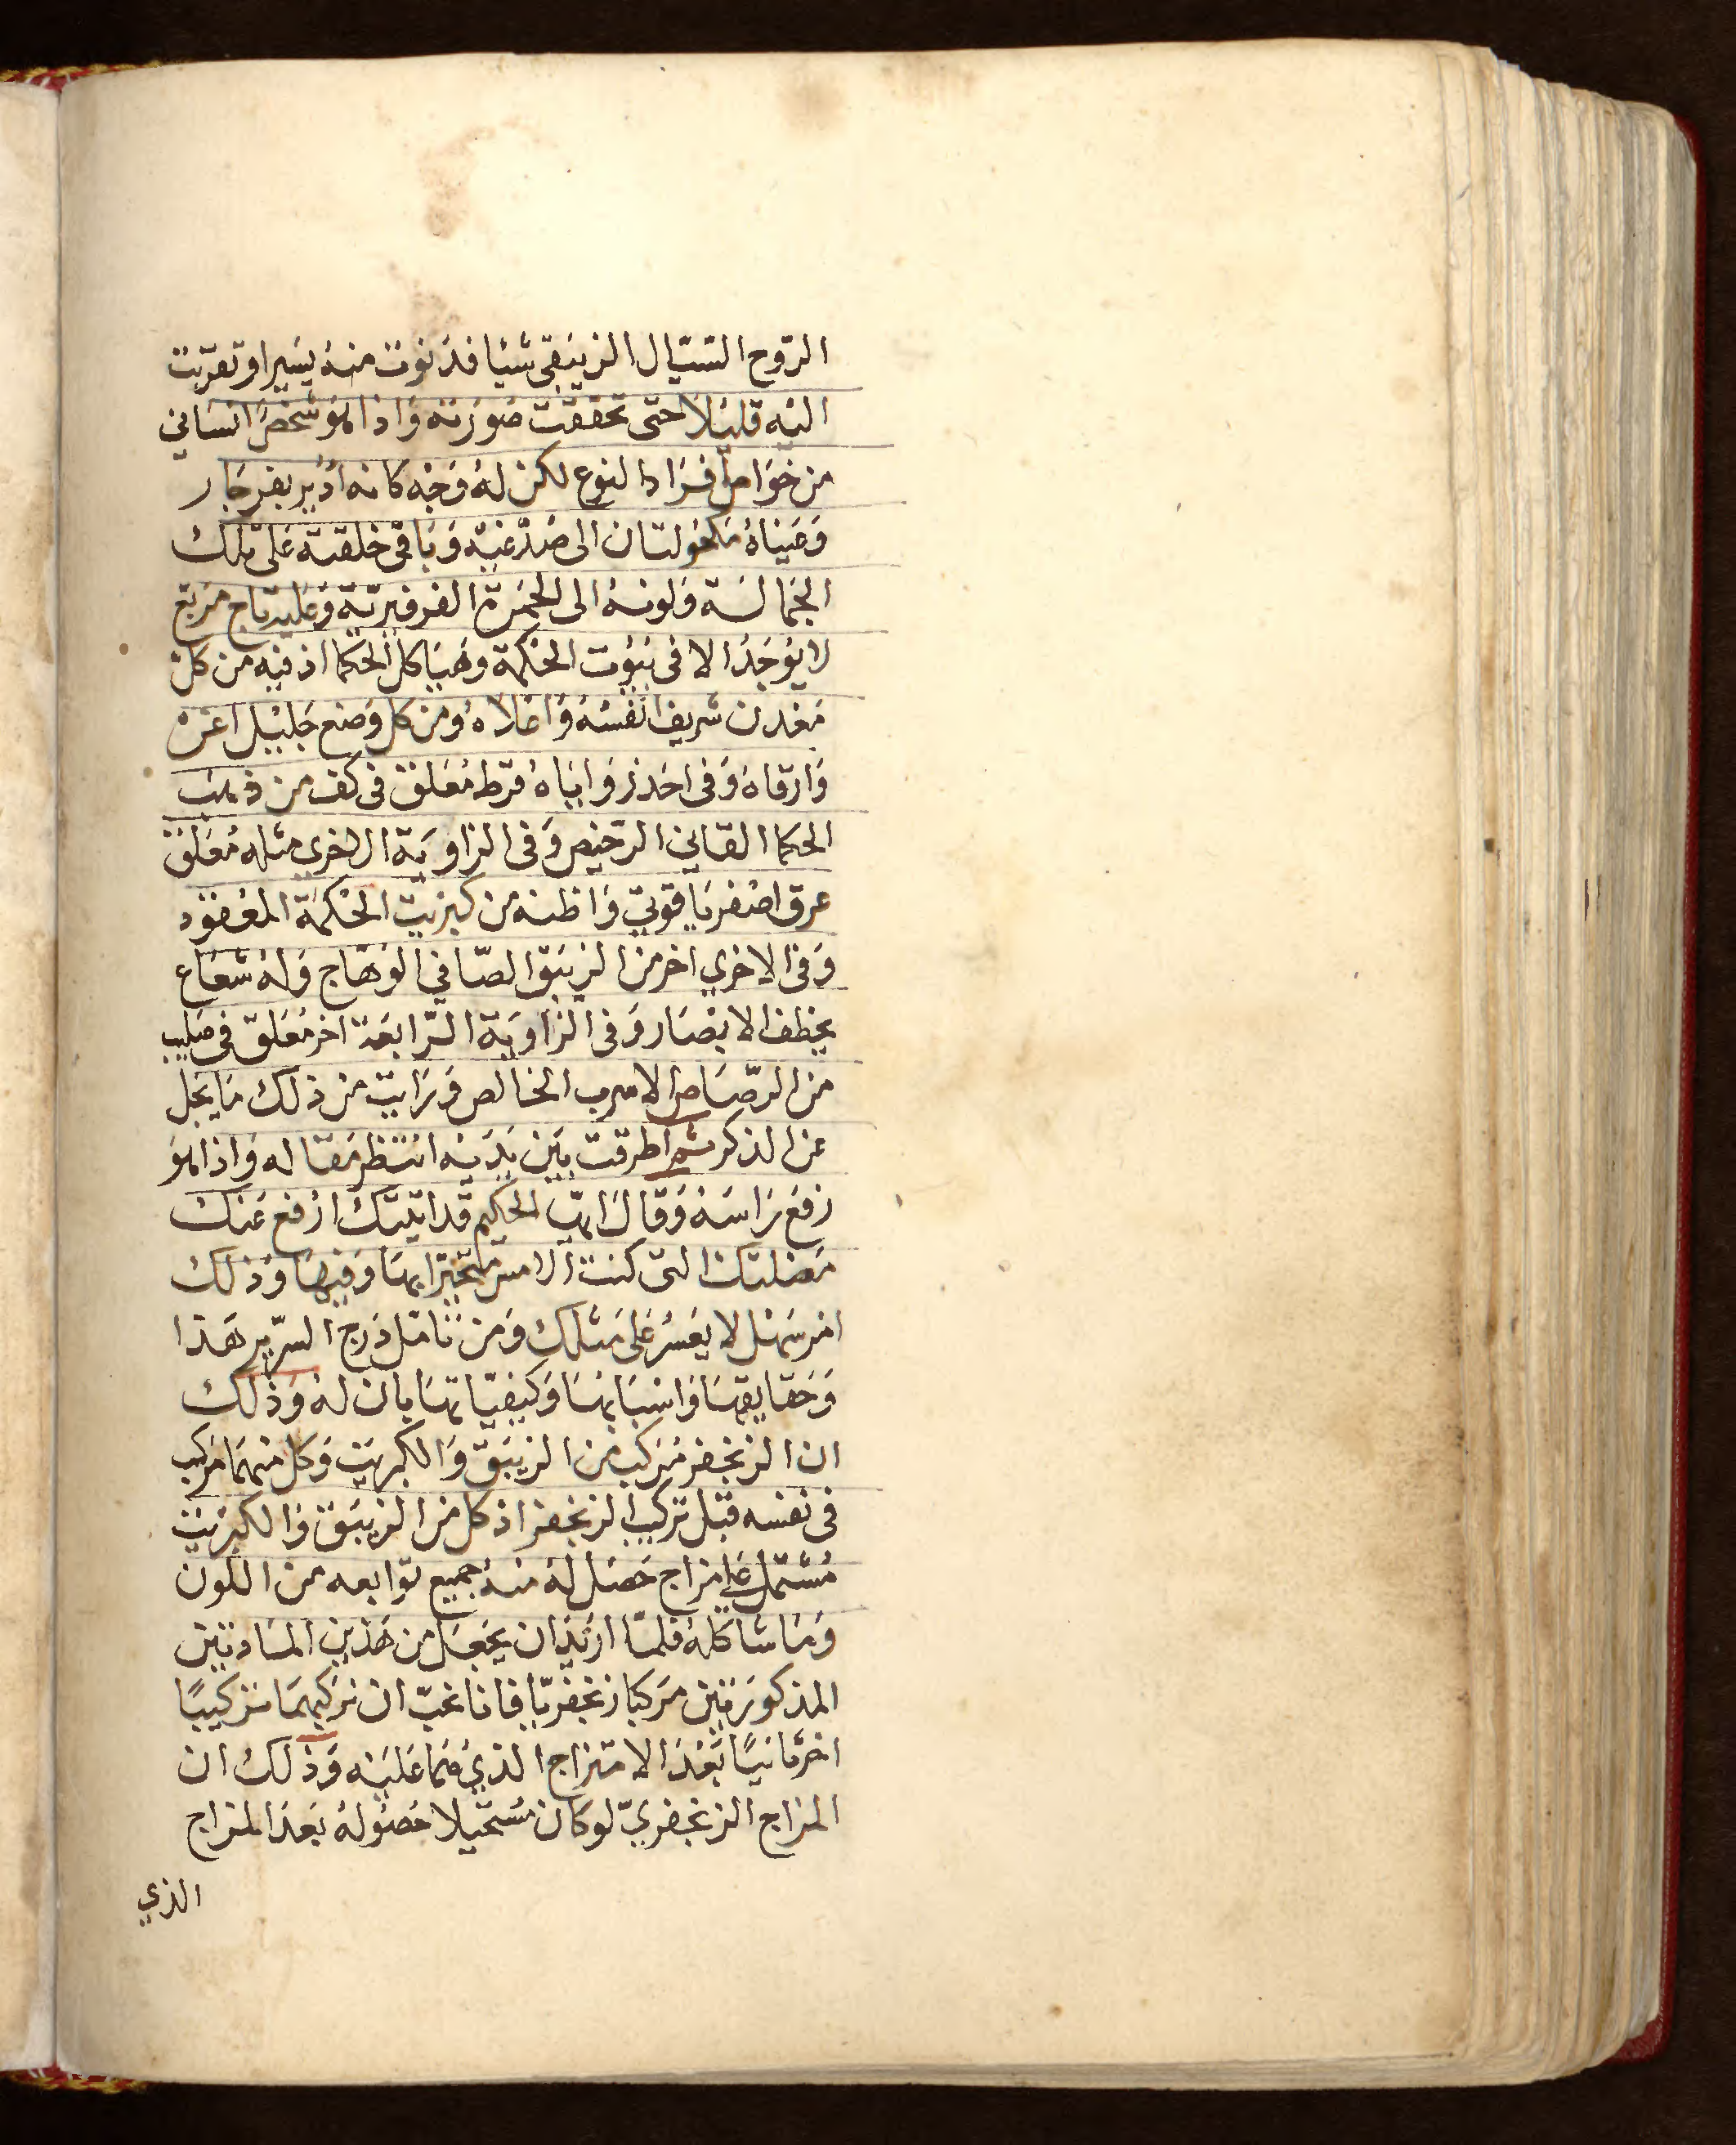 الرّوح السّيّال الزيبقى شيا فدنوت منه يسيرا وتقرّبت
اليه قليلا حتى تحققت صورته واذا هو شخص انساني
من خواص افراد النوع لكن له وجه كانه ادير بفرجار
وعيناه مكحولتان الى صدغيه وباقى خلقته على تلك
الجمالسة ولونه الى الحمرة الفرفيريّة وعليه تاج مربع
لا يوجد الا فى بيوت الحكمة وهياكل الحكما اذ فيه من كل
معدن شريف انفسه واعلاه ومن كل وضع جليل اعزه
وارقاه وفى احد زواياه قرط معلق فى كف من ذهب
الحكما القاني الرخيص وفى الزاوية الاخري مثله معلق
عرق اصفر ياقوتي واظنه من كبريت الحكمة المعقود
وفى الاخري اخر من الزيبق الصّافي الوهّاج وله شعاع
يخطف الابصار وفى الزاوية الرّابعة اخر معلق فى صليب
من الرّصاص الاسرب الخالص ورايت من ذلك ما يجل
عن الذكر ثم اطرقت بين يديه انتظر مقاله واذا هو
رفع راسه وقال ايها الحكيم قد اتيتك ارفع عنك
معضلتك التى كنت الامس متحيّرا بها وفيها وذلك
امر سهل لا يعسر على مثلك ومن تامّل درج السّرير هذا
وحقايقها واسبابها وكيفيّاتها بان له وذلك
ان الزنجفر مركب من الزيبق والكبريت وكل منهما مركب
فى نفسه قبل تركيب الزنجفر اذ كل من الزيبق والكبريت
مشتمل على مزاج حصل له منه جميع توابعه من اللون
وما شاكله فلمّا اريد ان يجعل من هذين المادتين
المذكورتين مركبا زنجفريّا فانا نحبّ ان نركبهما تركيبًا
اخر ثانيًا بعد الامتزاج الذي هما عليه وذلك ان
المزاج الزنجفريّ لو كان مستحيلا حصوله بعد المزاج
الذي